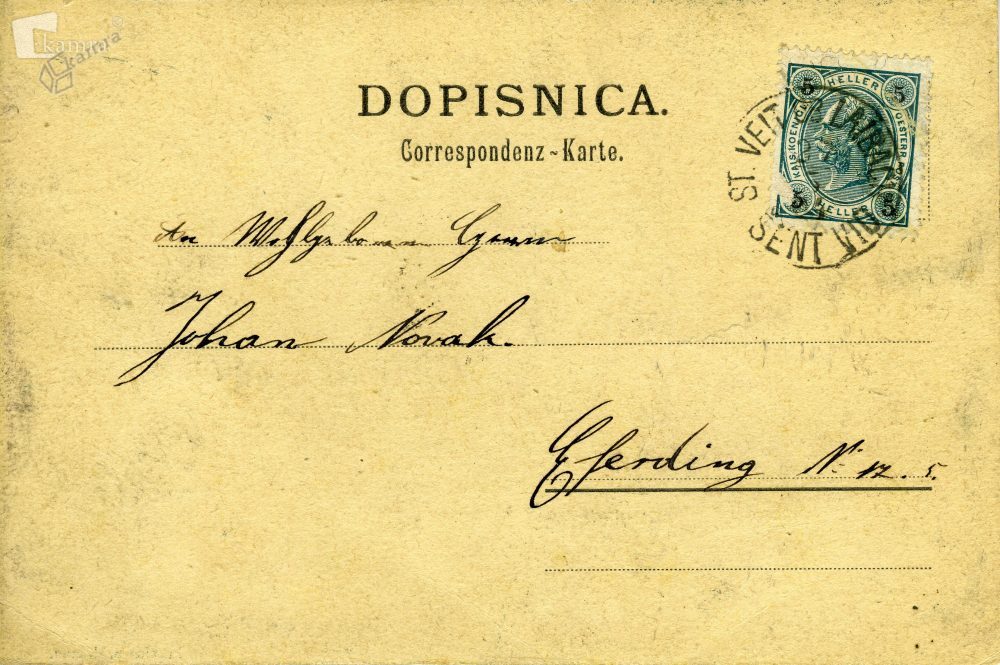 kamra
kamra
DOPISNICA.
Correspondenz-Karte.
5 HELLER 5
KAIS. KOENIGL. OESTERR.
5 HELLER 5
ST. VEIT LAIBACH
ŠENT VID
An Wohlgeboren Herrn
Johan Novak.
Eferding N: 17.